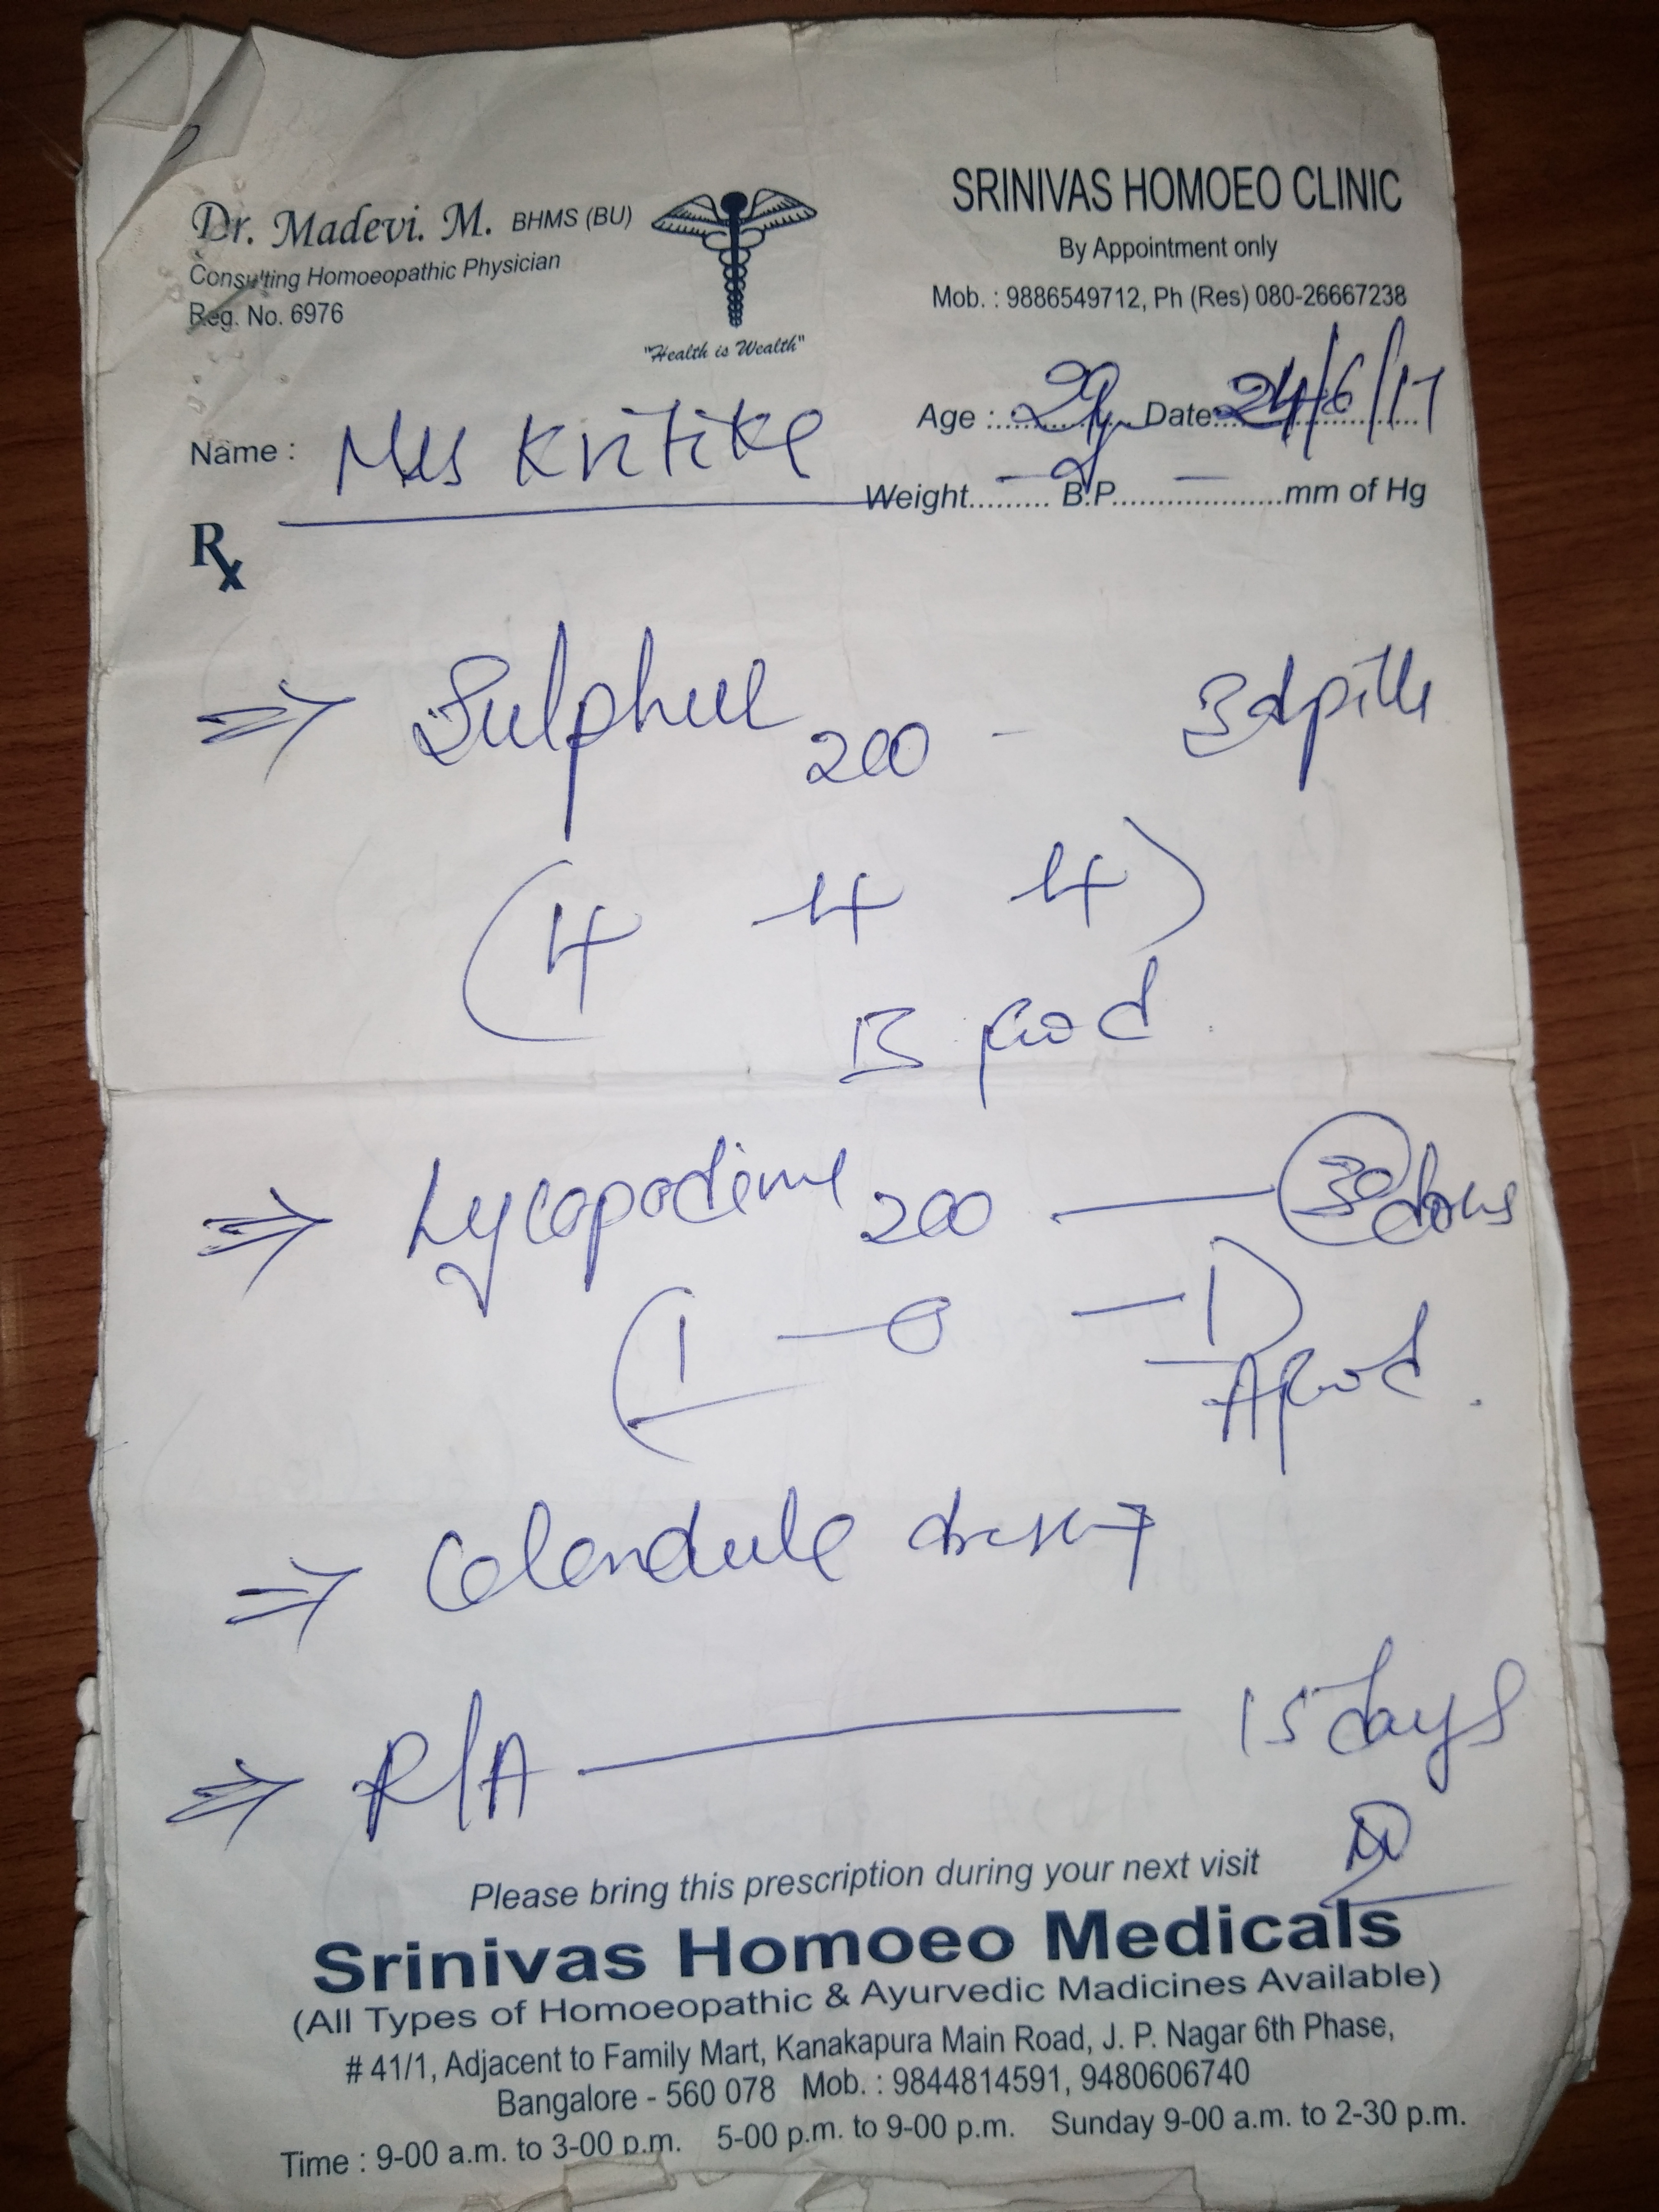 Dr. Madevi. M. BHMS (BU)
Consulting Homoeopathic Physician
Reg. No. 6976
"Health is Wealth"
SRINIVAS HOMOEO CLINIC
By Appointment only
Mob. : 9886549712, Ph (Res) 080-26667238
Name : Kritika
Age : 29y Date: 24/6/17
Weight......... B.P.....................mm of Hg
Rx
⇒ Sulphur 200 - 3dpills
(4 4 4)
B food
⇒ Lycopodium 200 — 30 doses
(1 — 0 — 1)
A food.
⇒ Calendula dressing
⇒ R/A — 15 days
Please bring this prescription during your next visit
Srinivas Homoeo Medicals
(All Types of Homoeopathic & Ayurvedic Madicines Available)
# 41/1, Adjacent to Family Mart, Kanakapura Main Road, J. P. Nagar 6th Phase,
Bangalore - 560 078 Mob. : 9844814591, 9480606740
Time : 9-00 a.m. to 3-00 p.m. 5-00 p.m. to 9-00 p.m. Sunday 9-00 a.m. to 2-30 p.m.